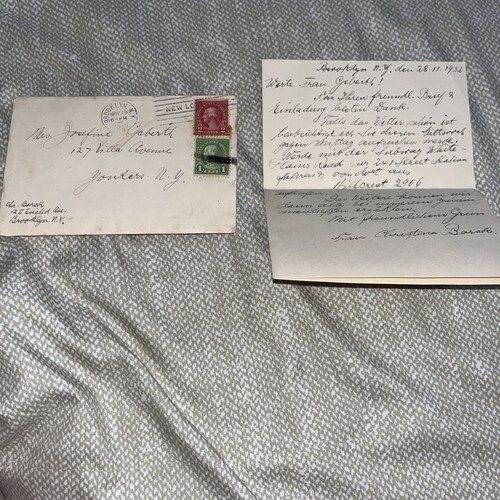 BROOKLYN N.Y.
NEW
2 CENTS 2
1 CENT 1
Mrs Josefine Geberth
127 Villa Avenue
Yonkers N.Y.
Chr. Barck
125 Euclid Ave.
Brooklyn N.Y.
Brooklyn N.Y. den 28.11.1932
Werte Frau Geberth!
Für Ihren freundl. Brief &
Einladung besten Dank.
Falls das Wetter schön ist
beabsichtige ich Sie diesen Mittwoch
gegen Mittag aufsuchen werde.
Würde mit der Subway White
Plains Road 241 Street Station
fahren & von dort aus
Hilcrest 2906
anrufen.
Des Weitere können wir
dann alle bei unserem Zusam
Mit freundlichem Gruss
Frau Christina Barck